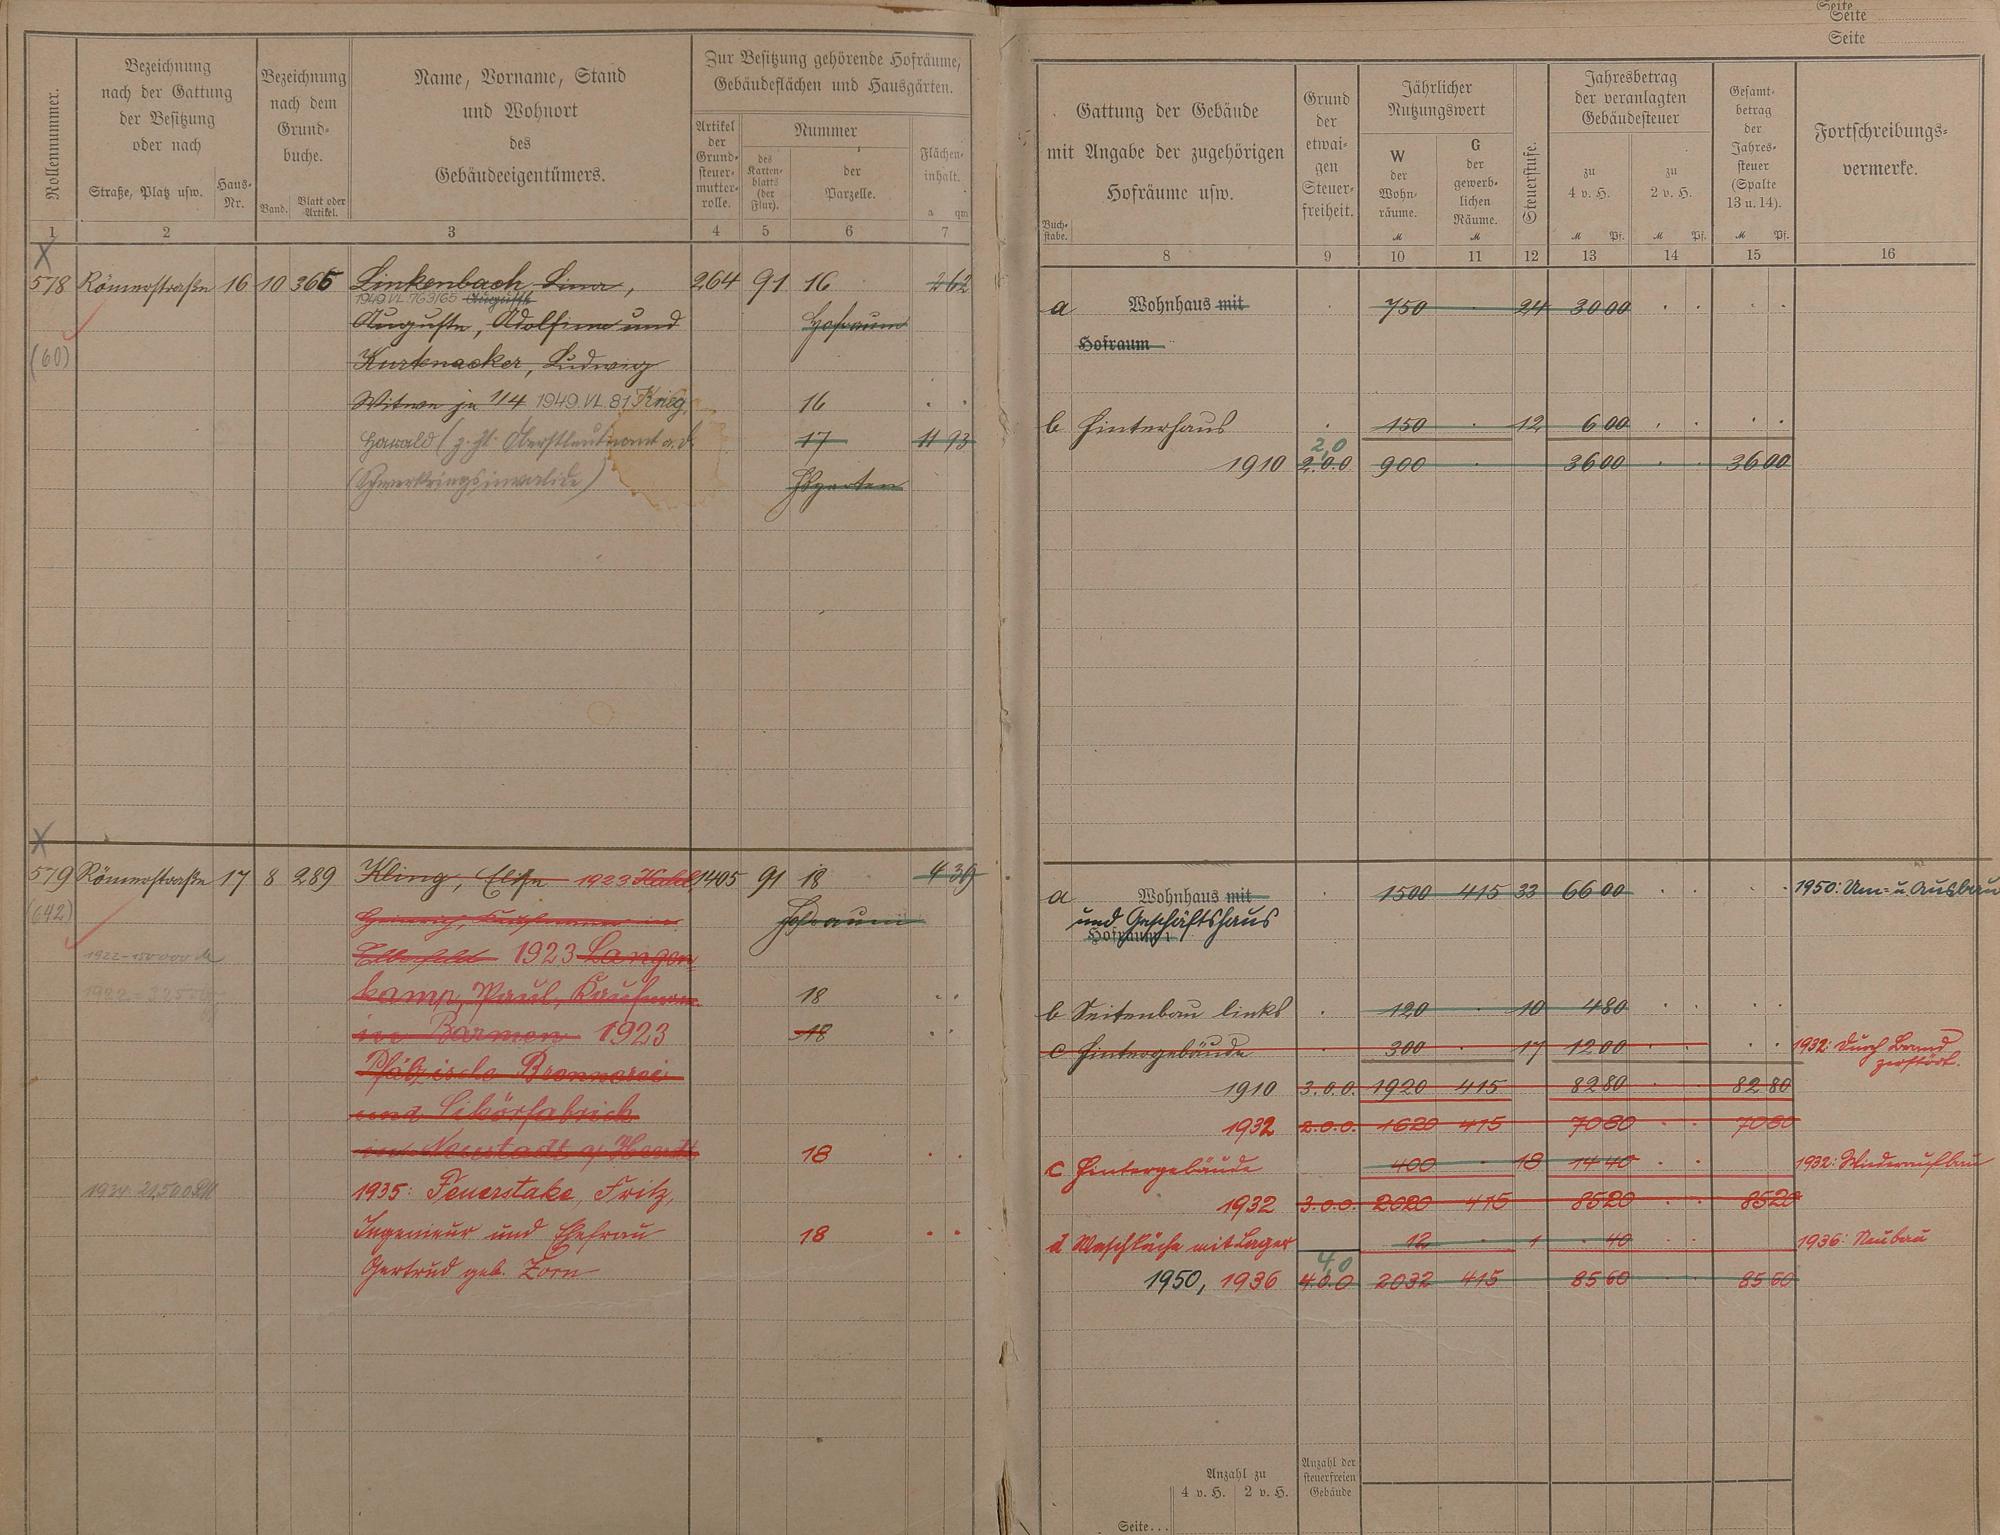 Rollennummer.
Bezeichnung
nach der Gattung
der Besitzung
oder nach
Straße, Platz usw.
Haus-
Nr.
Bezeichnung
nach dem
Grund-
buche.
Band.
Blatt oder
Artikel.
Name, Vorname, Stand
und Wohnort
des
Gebäudeeigentümers.
Zur Besitzung gehörende Hofräume,
Gebäudeflächen und Hausgärten.
Artikel
der
Grund-
steuer-
mutter-
rolle.
Nummer
des
Karten-
blatts
(der
Flur).
der
Parzelle.
Flächen-
inhalt.
a qm
1 2 3 4 5 6 7
578 Römerstraße 16 10 366 Linkenbach Lina, 264 91 16 2 62
1949 VL. 763/65 Auguste
Auguste, Adolfine und Hofraum
(60) Kurtenacker, Ludwig
Witwe je 1/4 1949. VL. 81 Krieg, 16
Harald (z. Zt. Oberstleutnant a. d. 17 11 93
(Schwerkriegsinvalide) Hsgarten
579 Römerstraße 17 8 289 Kling, Elise 1923 1405 91 18 4 39
(642) Heinrich, Kaufmann in Hofraum
1922 - 150 000 M Elberfeld 1923 Langen-
kamp, Paul, Kaufmann 18
in Barmen 1923 18
Pfälzische Brennerei
und Likörfabrick
in Neustadt a/Haardt 18
21,500 RM 1935: Feuerstake, Fritz,
Ingenieur und Ehefrau 18
Gertrud geb. Zorn
Seite
Seite
Seite
Buch-
stabe.
Gattung der Gebäude
mit Angabe der zugehörigen
Hofräume usw.
Grund
der
etwai-
gen
Steuer-
freiheit.
Jährlicher
Nutzungswert
W
der
Wohn-
räume.
M
G
der
gewerb-
lichen
Räume.
M
Steuerstufe.
Jahresbetrag
der veranlagten
Gebäudesteuer
zu
4 v. H.
M Pf.
zu
2 v. H.
M Pf.
Gesamt-
betrag
der
Jahres-
steuer
(Spalte
13 u. 14).
M Pf.
Fortschreibungs-
vermerke.
8 9 10 11 12 13 14 15 16
a Wohnhaus mit 750 24 30 00
Hofraum
b Hinterhaus 150 12 6 00
2,0
1910 2.0.0 900 36 00 36 00
a Wohnhaus mit 1500 415 33 66 00 1950: Um- u. Ausbau
und Geschäftshaus
Hofraum
b Seitenbau links 120 10 4 80
c Hintergebäude 300 17 12 00 1932: Durch Brand
zerstört.
1910 3.0.0. 1920 415 82 80 82 80
1932 2.0.0. 1620 415 70 80 70 80
c Hintergebäude 400 18 14 40 1932: Wiederaufbau
1932 3.0.0. 2020 415 85 20 85 20
d Waschküche mit Lager 12 1 40 1936: Neubau
4,0
1950, 1936 4.0.0 2032 415 85 60 85 60
Anzahl zu
4 v. H. 2 v. H.
Anzahl der
steuerfreien
Gebäude
Seite...